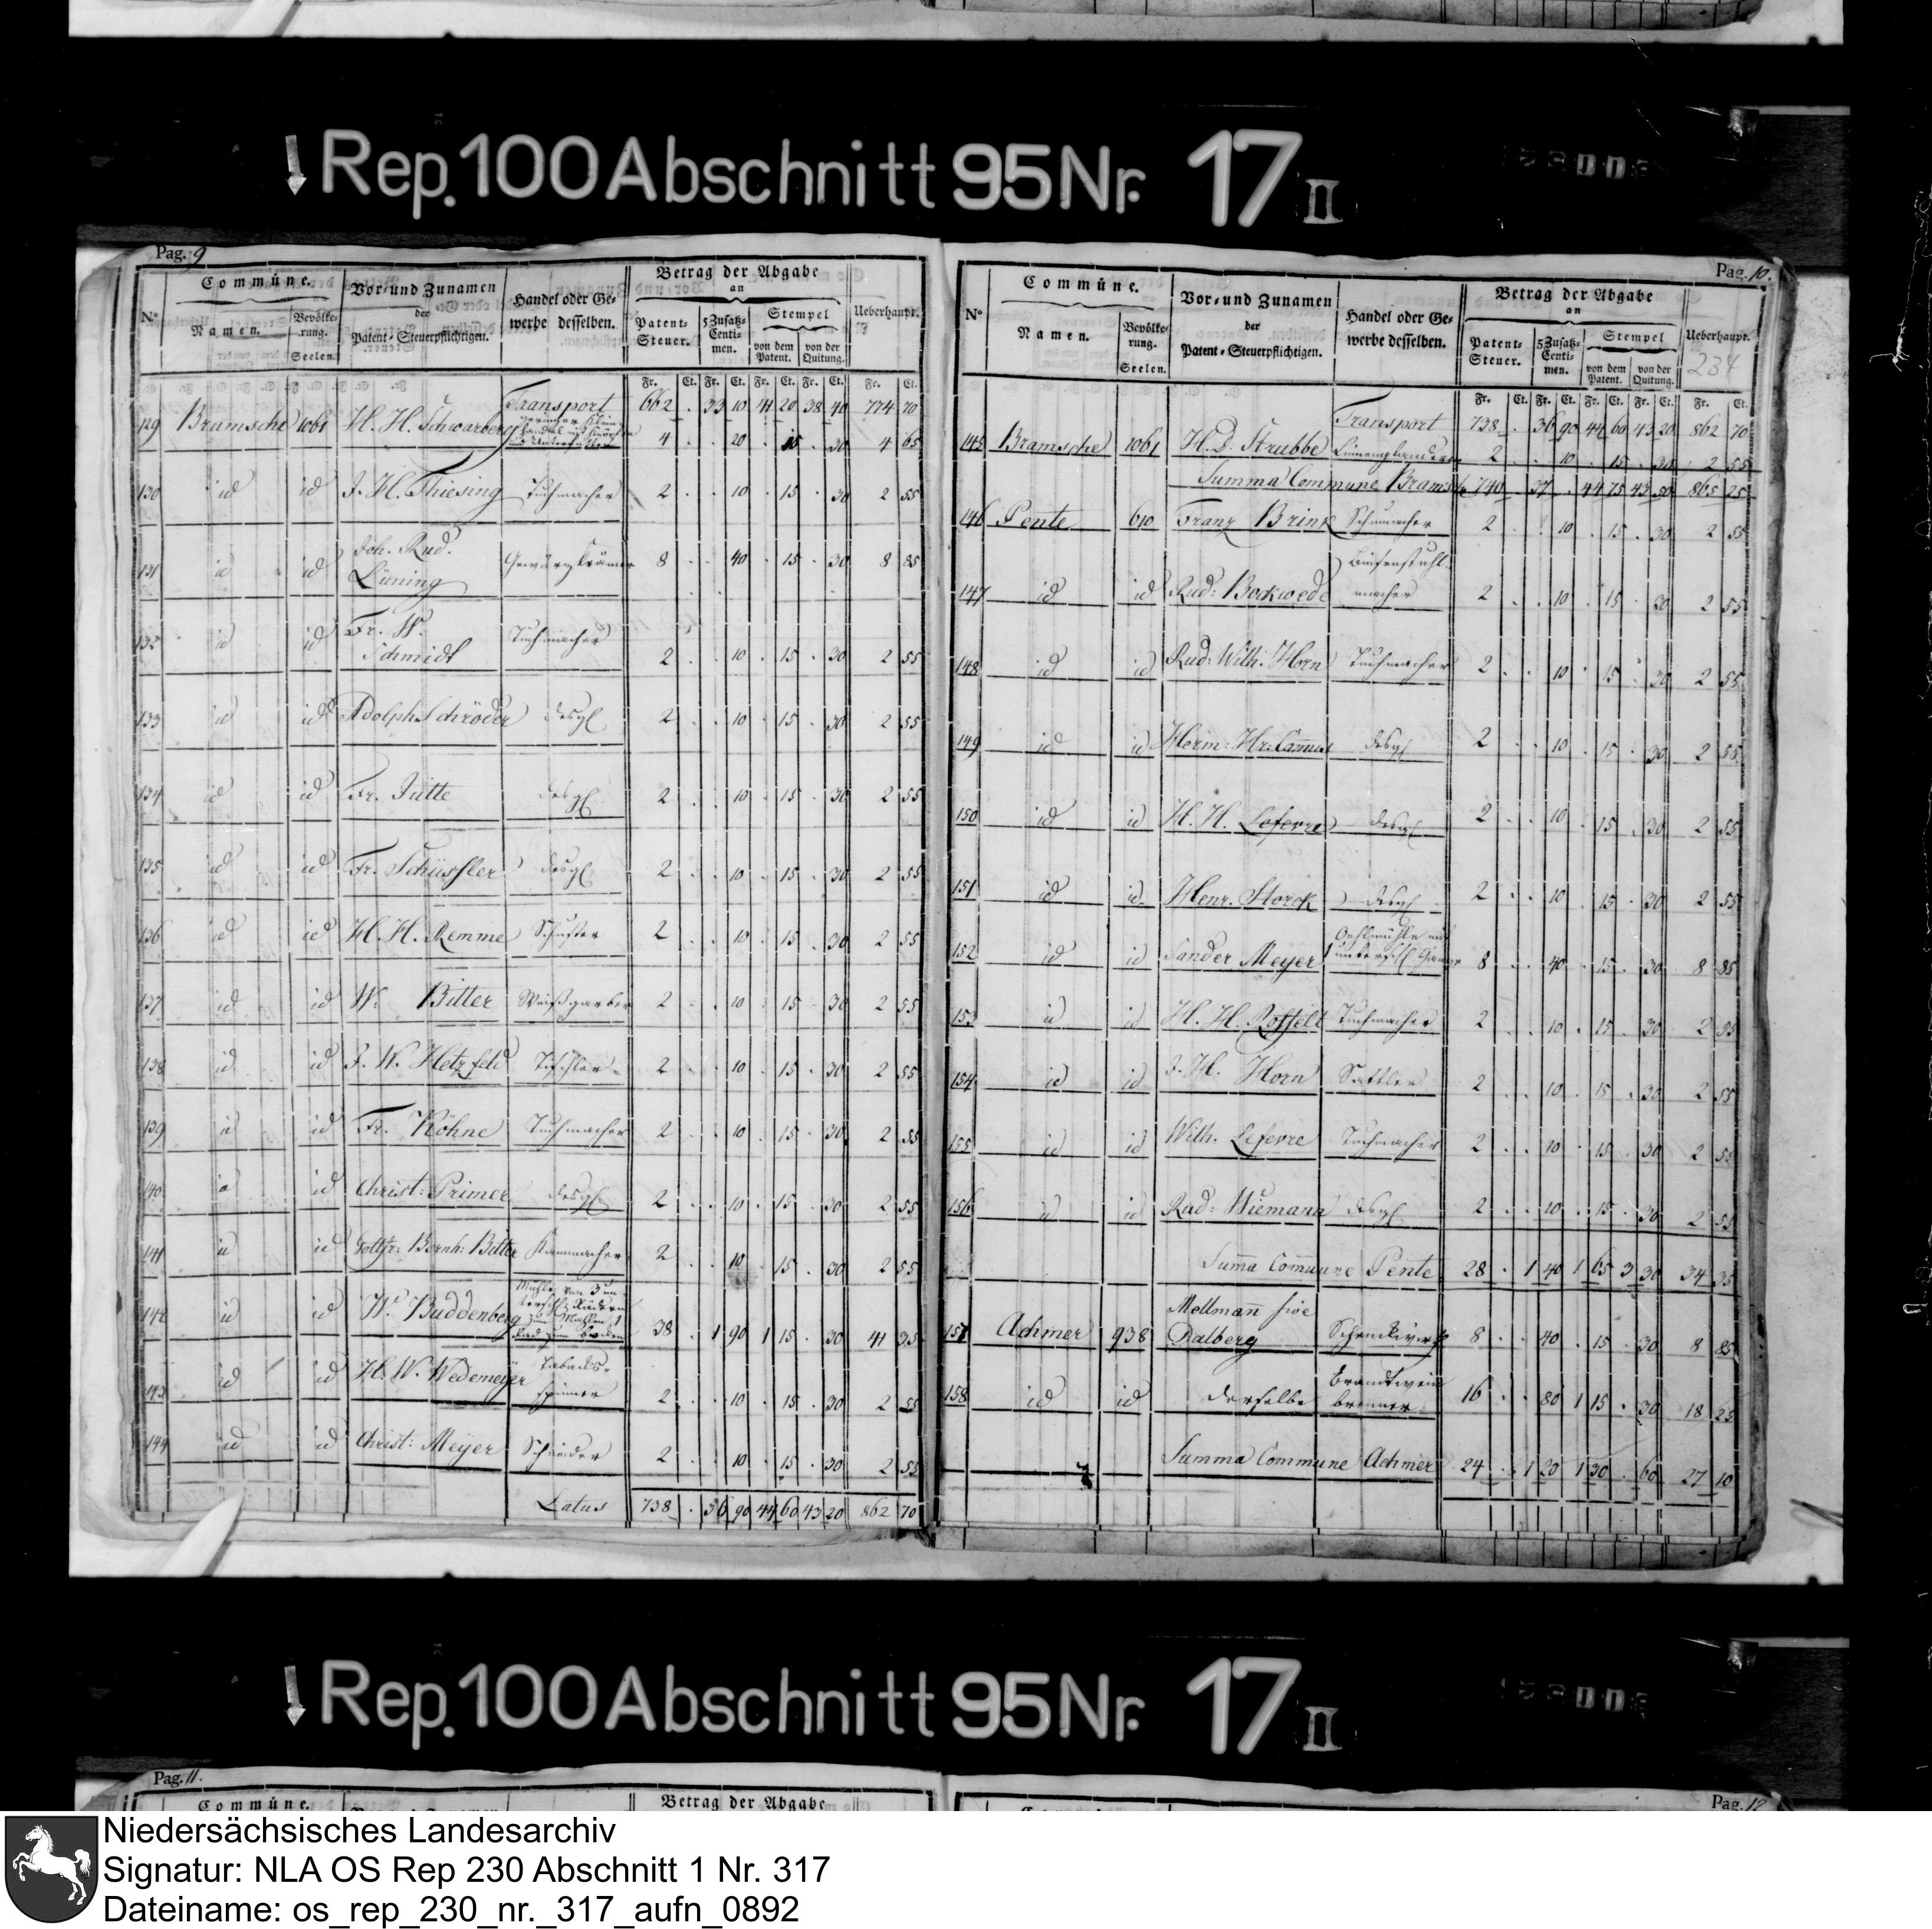 Rep. 100 Abschnitt 95 Nr. 17 II
Pag. 9
Commúne.
Vor- und Zunamen
der
Patent-Steuerpflichtigen.
Handel oder Ge-
werbe desselben.
Betrag der Abgabe
an
Ueberhaupt.
N°
Namen.
Bevölke-
rung.
Seelen.
Patent-
Steuer.
5 Zusatz-
Centi-
men.
Stempel
von dem
Patent.
von der
Quitung.
Fr. Ct. Fr. Ct. Fr. Ct. Fr. Ct. Fr. Ct.
Transport 662 . 33 10 41 20 38 40 774 70
129 Bramsche 1061 H. H. Schwarberg 4 . . 20 . 15 . 30 4 65
130 id id J. H. Thiesing Tuchmacher 2 . . 10 . 15 . 30 2 55
131 id id Joh. Rud.
Lüning Gewürzkrämer 8 . . 40 . 15 . 30 8 85
132 id id Fr. W.
Schmidt Tuchmacher 2 . . 10 . 15 . 30 2 55
133 id id Adolph Schröder desgl 2 . . 10 . 15 . 30 2 55
134 id id Fr. Jütte desgl 2 . . 10 . 15 . 30 2 55
135 id id Fr. Schüssler desgl 2 . . 10 . 15 . 30 2 55
136 id id H. H. Remme Schuster 2 . . 10 . 15 . 30 2 55
137 id id W. Bitter Weißgarber 2 . . 10 . 15 . 30 2 55
138 id id J. W. Hetzfeld Tischler 2 . . 10 . 15 . 30 2 55
139 id id Fr. Köhne Tuchmacher 2 . . 10 . 15 . 30 2 55
140 id id Christ: Primer desgl 2 . . 10 . 15 . 30 2 55
141 id id Gottfr: Bernh: Bitter Kammacher 2 . . 10 . 15 . 30 2 55
142 id id W. Buddenberg Mühle von 3 un-
terschl. Rädern
zum Mahlen 1
Rad zum 38 . 1 90 1 15 . 30 41 35
143 id id H. W. Wedemeyer Tabacks-
spinner 2 . . 10 . 15 . 30 2 55
144 id id Christ: Meyer Schneider 2 . . 10 . 15 . 30 2 55
Latus 738 . 36 90 44 60 43 20 862 70
Pag. 10.
Commúne.
Vor- und Zunamen
der
Patent-Steuerpflichtigen.
Handel oder Ge-
werbe desselben.
Betrag der Abgabe
an
Ueberhaupt.
234
N°
Namen.
Bevölke-
rung.
Seelen.
Patent-
Steuer.
5 Zusatz-
Centi-
men.
Stempel
von dem
Patent.
von der
Quitung.
Fr. Ct. Fr. Ct. Fr. Ct. Fr. Ct. Fr. Ct.
Transport 738 . 36 90 44 60 43 20 862 70
145 Bramsche 1061 H. D. Strubbe 2 . . 10 . 15 . 30 2 55
Summa Commune Bramsche 740 . 37 . 44 75 43 50 865 25
146 Pente 610 Franz Brink Schumacher 2 . . 10 . 15 . 30 2 55
147 id id Rud: Bokwede Binsenstuhl-
macher 2 . . 10 . 15 . 30 2 55
148 id id Rud: Wilh. Horn Tuchmacher 2 . . 10 . 15 . 30 2 55
149 id id Herm: Hr: Camus desgl 2 . . 10 . 15 . 30 2 55
150 id id H. H. Lefevre desgl 2 . . 10 . 15 . 30 2 55
151 id id Henr. Storck desgl 2 . . 10 . 15 . 30 2 55
152 id id Sander Meyer Oehlmühle mit
1 unterschl Gange 8 . . 40 . 15 . 30 8 85
153 id id H. H. Rothfelt Tuchmacher 2 . . 10 . 15 . 30 2 55
154 id id J. H. Horn Sattler 2 . . 10 . 15 . 30 2 55
155 id id Wilh. Lefevre Tuchmacher 2 . . 10 . 15 . 30 2 55
156 id id Rud: Wiemann desgl 2 . . 10 . 15 . 30 2 55
Suma Comune Pente 28 . 1 40 1 65 3 30 34 35
157 Achmer 938 Mellman sive
Dalberg Schenkwirth 8 . . 40 . 15 . 30 8 85
158 id id derselbe Brandtwein
brenner 16 . . 80 1 15 . 30 18 25
Summa Commune Achmer 24 . 1 20 1 30 . 60 27 10
Rep. 100 Abschnitt 95 Nr. 17 II
Pag. 11.
Commúne.
Betrag der Abgabe
Pag. 12
Niedersächsisches Landesarchiv
Signatur: NLA OS Rep 230 Abschnitt 1 Nr. 317
Dateiname: os_rep_230_nr._317_aufn_0892